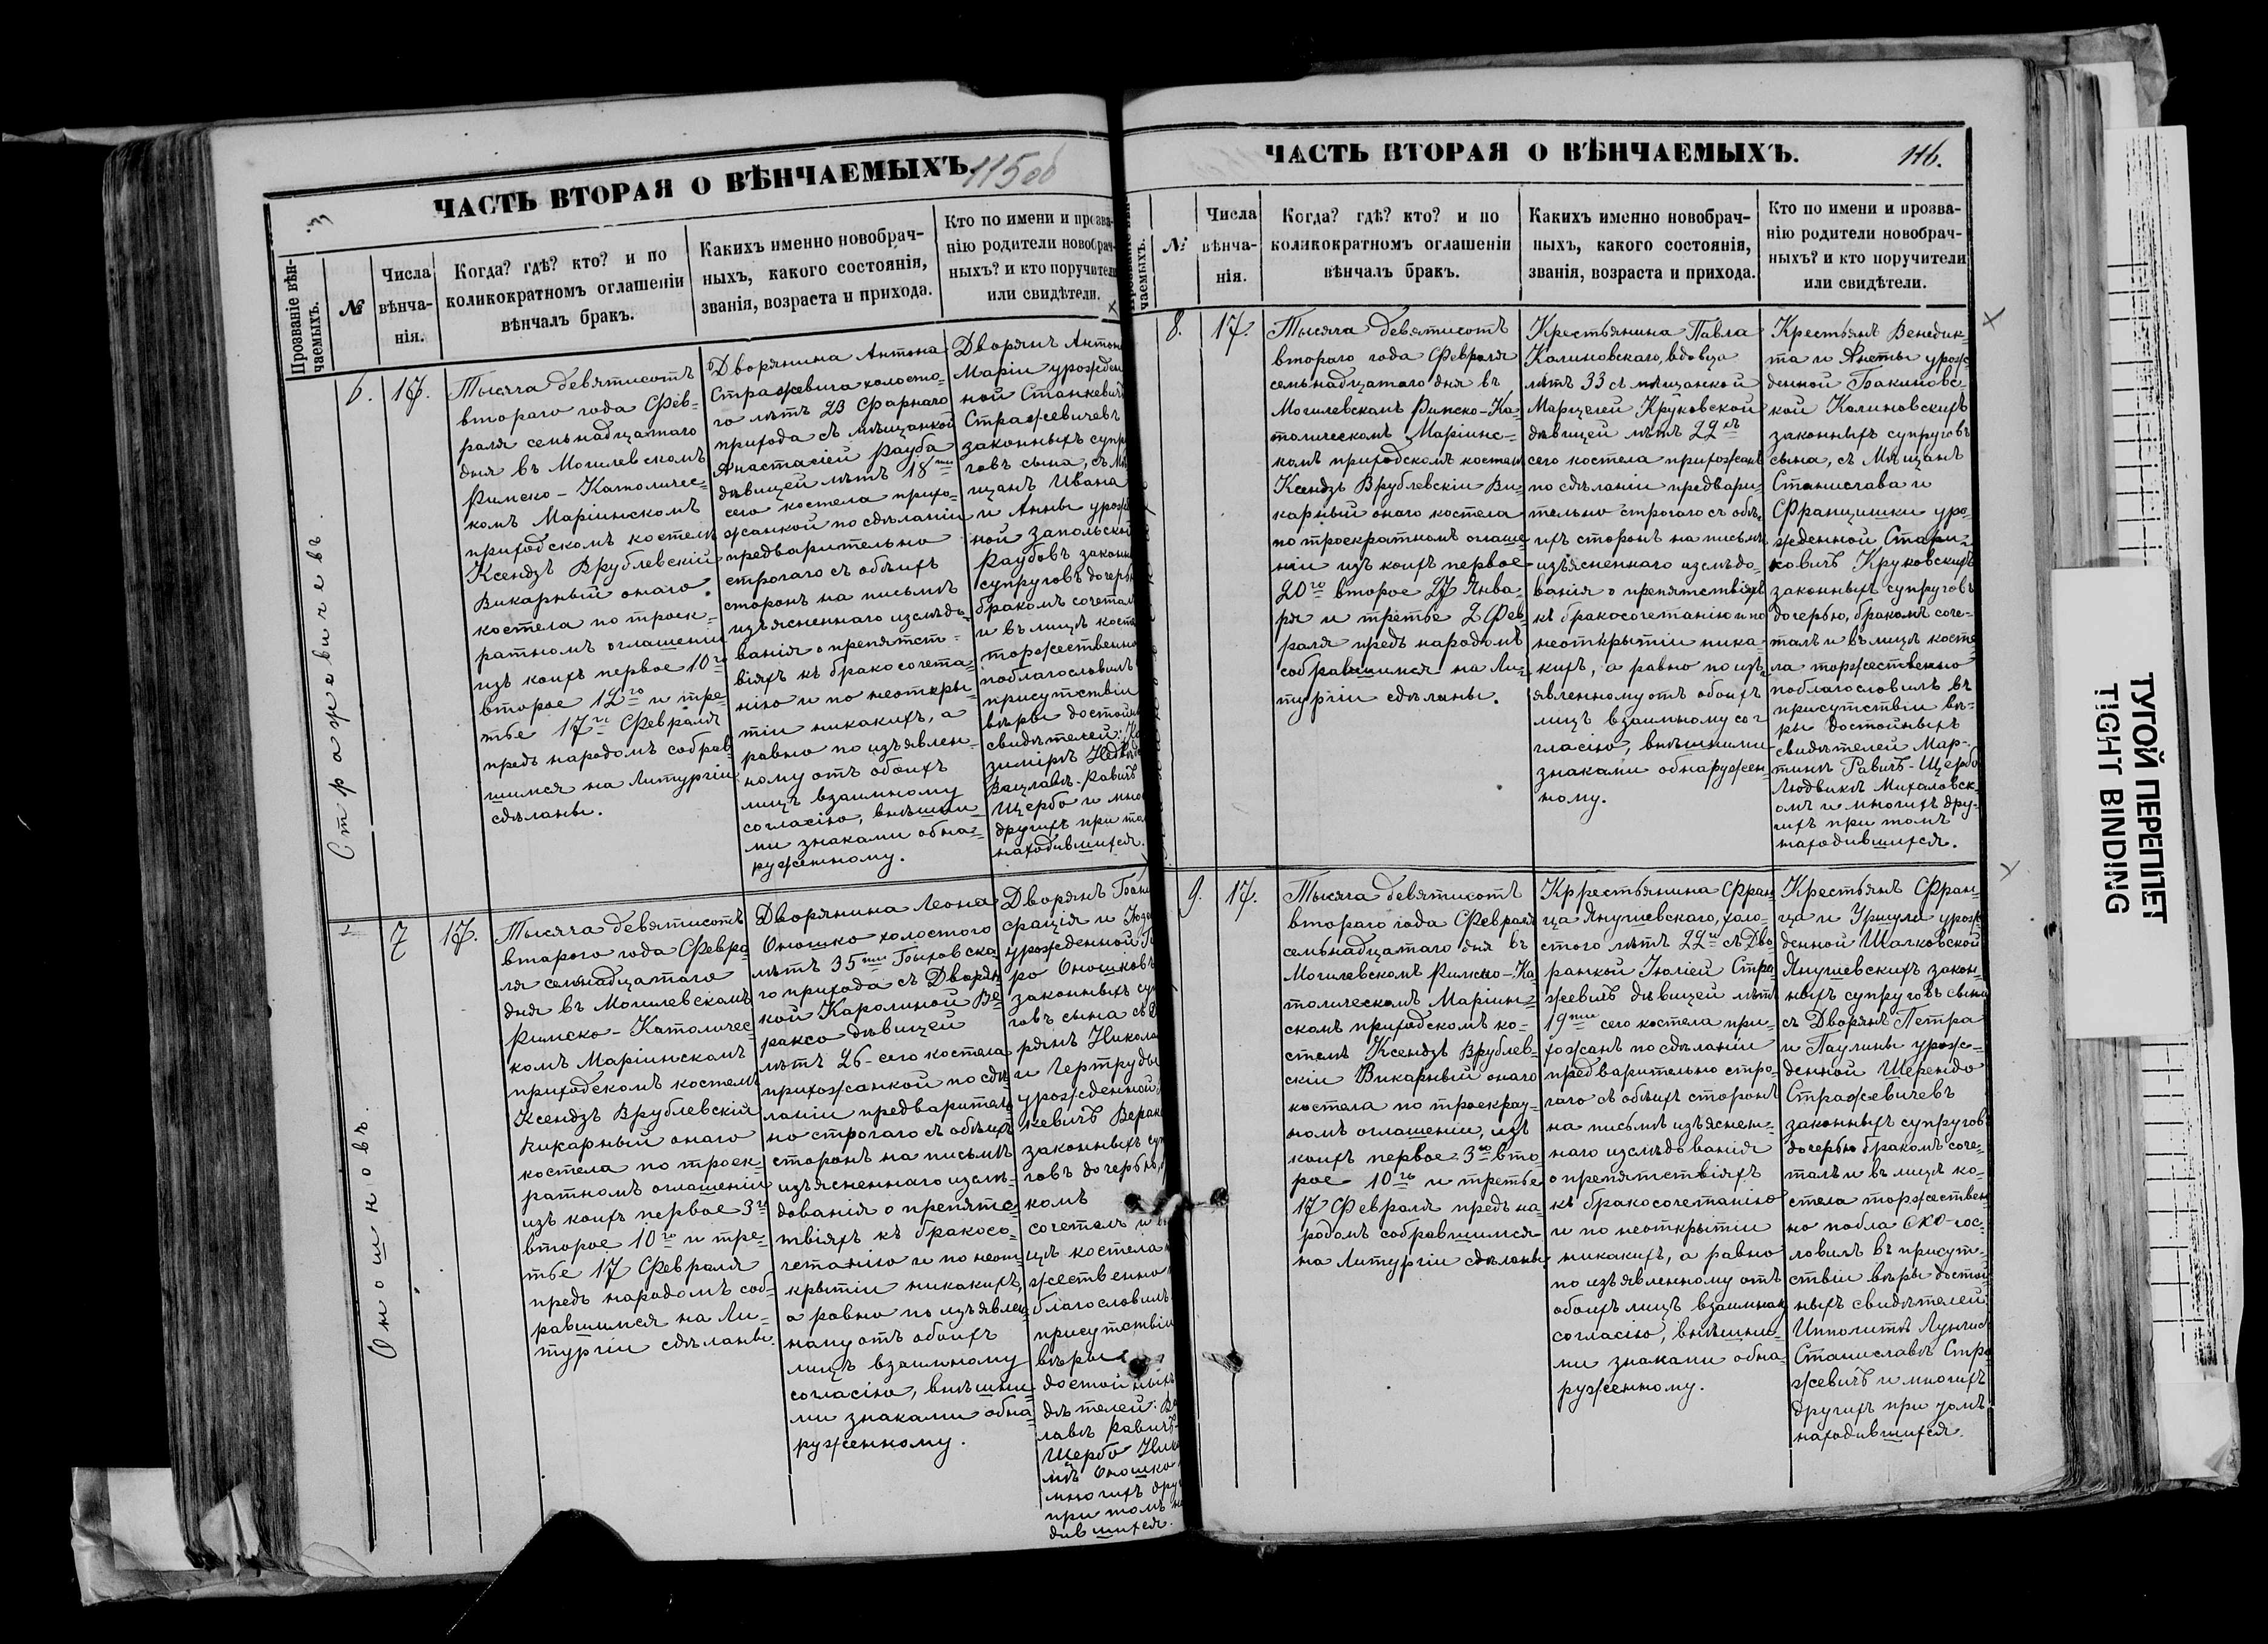 ЧАСТЬ ВТОРАЯ О ВѢНЧАЕМЫХЪ.
115об
3
Прозваніе вѣн-
чаемыхъ.
№
Числа
вѣнча-
нія.
Когда? гдѣ? кто? и по
коликократномъ оглашеніи
вѣнчалъ бракъ.
Какихъ именно новобрач-
ныхъ, какого состоянія,
званія, возраста и прихода.
Кто по имени и прозва-
нію родители новобрач-
ныхъ? и кто поручители
или свидѣтели.
Стражевичевъ.
6.
17.
Тысяча девятисотъ
втораго года Фев-
раля семьнадцатаго
дня въ Могилевскомъ
Римско-Католичес-
комъ Маріинскомъ
приходскомъ костелѣ
Ксендзъ Врублевскій
Викарный онаго
костела по троек-
ратномъ оглашеніи
изъ коихъ первое 10го
второе 12го и тре-
тье 17го Февраля
предъ народомъ собрав-
шимся на Литургіи
сдѣланы.
Дворянина Антона
Стражевича холосто-
го лѣтъ 23 Фарнаго
прихода съ мѣщанкой
Анастасіей Рауба
дѣвицей лѣтъ 18ти
сего костела прихо-
жанкой по сдѣланіи
предварительно
строгаго съ обѣихъ
сторонъ на письмѣ
изъясненнаго изслѣдо-
ванія о препятст-
віяхъ къ бракосочета-
нію и по неоткры-
тіи никакихъ, а
равно по изъявлен-
ному отъ обоихъ
лицъ взаимному
согласію, внѣшни-
ми знаками обна-
руженному.
Дворянъ Антон
Маріи урожден
ной Станкевич
Стражевичевъ
законныхъ супр
говъ сына, съ Мѣ
щанъ Ивана
и Анны урож
ной Запольской
Раубовъ законн
супруговъ дочерь
бракомъ сочетал
и въ лицѣ косте
торжественно
поблагословилъ
присутствіи
вѣры достойн
свидѣтелей: Ка
зиміръ
Вацлавъ-Равичъ
Щербо и мно
другихъ при то
находившихся.
Оношковъ.
7
17.
Тысяча девятисотъ
втораго года Февра
ля семьнадцатаго
дня въ Могилевскомъ
Римско-Католичес-
комъ Маріинскомъ
приходскомъ костелѣ
Ксендзъ Врублевскій
Викарный онаго
костела по троек-
ратномъ оглашеніи
изъ коихъ первое 3го
второе 10го и тре-
тье 17 Февраля
предъ народомъ соб-
равшимся на Ли-
тургіи сдѣланы.
Дворянина Леона
Оношко холостого
лѣтъ 35ти Быховска
го прихода съ Дворян
кой Каролиной Ве-
раксо дѣвицей
лѣтъ 26-сего костела
прихожанкой по сдѣ
ланіи предваритель
но строгаго съ обѣихъ
сторонъ на письмѣ
изъясненнаго изслѣ-
дованія о препятс-
твіяхъ къ бракосо-
четанію и по неот-
крытіи никакихъ,
а равно по изъявлен
ному отъ обоихъ
лицъ взаимному
согласію, внѣшни-
ми знаками обна-
руженному.
Дворянъ Бони
фація и Юзе
урожденной
ро Оношковъ
законныхъ суп
говъ сына съ Д
рянъ Никола
и Гертруды
урожденной
кевичъ Верак
законныхъ суп
говъ дочерью,
комъ
сочеталъ и въ
цѣ костела
жественно
благословилъ
присутствіи
вѣры
достойныхъ
дѣтелей: Ва
лавъ Равичъ
Щербо
Оношко
многихъ друг
при томъ на
дившихся.
ЧАСТЬ ВТОРАЯ О ВѢНЧАЕМЫХЪ.
116.
чаемыхъ.
№
Числа
вѣнча-
нія.
Когда? гдѣ? кто? и по
коликократномъ оглашеніи
вѣнчалъ бракъ.
Какихъ именно новобрач-
ныхъ, какого состоянія,
званія, возраста и прихода.
Кто по имени и прозва-
нію родители новобрач-
ныхъ? и кто поручители
или свидѣтели.
8.
17.
Тысяча девятисотъ
втораго года Февраля
семьнадцатаго дня въ
Могилевскомъ Римско-Ка-
толическомъ Маріинс-
комъ приходскомъ костелѣ
Ксендзъ Врублевскіи Ви-
карный онаго костела
по троекратномъ оглаше-
ніи изъ коихъ первое
20го второе 27 Янва-
ря и третье 2 Фев-
раля предъ народомъ
собравшимся на Ли-
тургіи сдѣланы.
Крестьянина Павла
Калиновскаго, вдовца
лѣтъ 33 съ мѣщанкой
Марцелей Круковской
дѣвицей лѣтъ 22хъ
сего костела прихожанъ
по сдѣланіи предвари-
тельно строгаго съ обѣ-
ихъ сторонъ на письмѣ
изъясненнаго изслѣдо-
ванія о препятствіяхъ
къ бракосочетанію и по
неоткрытіи ника-
кихъ, а равно по изъ-
явленному отъ обоихъ
лицъ взаимному сог-
гласію, внѣшними
знаками обнаружен-
ному.
Крестьянъ Венедик-
та и Анеты урож-
денной Бакиновс-
кой Калиновскихъ
законныхъ супруговъ
сына, съ Мѣщанъ
Станислава и
Францишки уро-
жденной Стари-
ковичъ Круковскихъ
законныхъ супруговъ
дочерью, бракомъ соче-
талъ и въ лицѣ косте
ла торжественно
поблагословилъ въ
присутствіи вѣ-
ры достойныхъ
свидѣтелей Мар-
тинъ Равичъ-Щербо
Людвикъ Михаловск-
омъ и многихъ дру-
гихъ при томъ
находившихся.
9.
17.
Тысяча девятисотъ
втораго года Февраля
семьнадцатаго дня въ
Могилевскомъ Римско-Ка
толическомъ Маріин-
скомъ приходскомъ ко-
стелѣ Ксендзъ Врублев-
скіи Викарный онаго
костела по троекрат-
номъ оглашеніи, изъ
коихъ первое 3го вто
рое 10го и третье
17 Февраля предъ на-
родомъ собравшимся
на Литургіи сдѣланы
Кррестьянина Фран
ца Янушевскаго, холо-
стого лѣтъ 22хъ съ Дво
рянкой Юліей Стра-
жевичъ дѣвицей лѣтъ
19ти сего костела при-
хожанъ по сдѣланіи
предварительно стро-
гаго съ обѣихъ сторонъ
на письмѣ изъяснен-
наго изслѣдованія
о препятствіяхъ
къ бракосочетанію
и по неоткрытіи
никакихъ, а равно
по изъявленному отъ
обоихъ лицъ взаимному
согласію, внѣшни-
ми знаками обна-
руженному.
Крестьянъ Фран-
ца и Уршули урож-
денной Шачковской
Янушевскихъ закон-
ныхъ супруговъ сына
съ Дворянъ Петра
и Паулины урож-
денной Шерендо
Стражевичевъ
законныхъ супругов
дочерью бракомъ соче-
талъ и въ лицѣ ко-
стела торжествен
но побла гос-
ловилъ въ присут-
ствіи вѣры достой
ныхъ свидѣтелей:
Ипполитъ
Станиславъ Стра-
жевичъ и многихъ
другихъ при томъ
находившихся.
ТУГОЙ ПЕРЕПЛЕТ
TIGHT BINDING